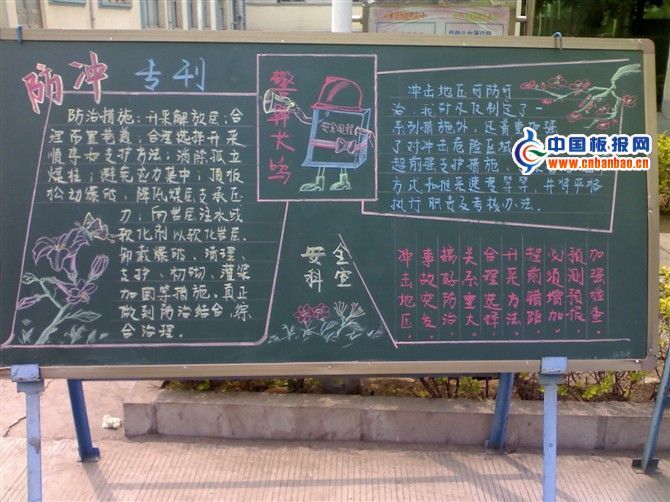 防冲 专刊
防治措施：开采解放层；合
理布置巷道；合理选择开采
顺序和支护方法；消除孤立
煤柱；避免应力集中；顶板
松动爆破，降低煤层支承压
力；向岩层注水或
软化剂以软化岩层。
卸载爆破、清理、
支护、初动、灌浆
加固等措施，真正
做到防治结合，综
合治理。
警钟长鸣
安全宣
科
冲击地压可防可
治，我矿及制定了一
系列措施外，还着重加强
了对冲击危险区域
超前强支护措施、
方式和推采进度等等，并将严格
执行职责及考核办法。
冲击地压，
事故突发，
搞好防治，
关系重大，
合理选择，
开采方法，
程前错距，
必须增加，
预测预报，
加强检查，
中国板报网
www.cnbanbao.cn